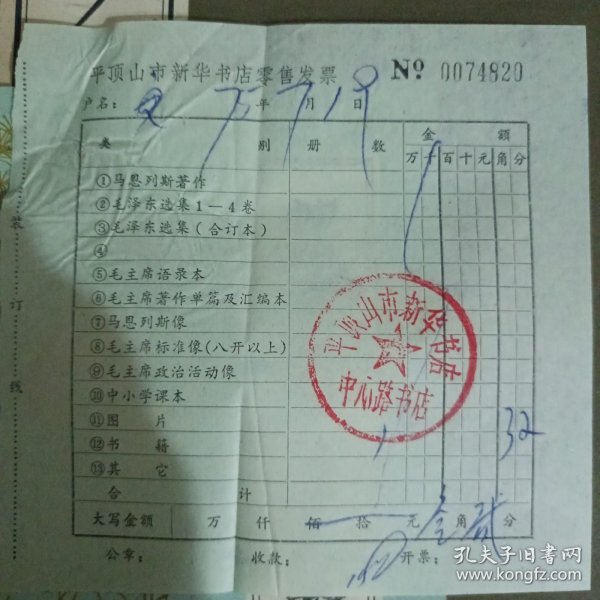 平顶山市新华书店零售发票 Nº 0074820
户名： 年 7 月 19 日
类 别 册 数 金 额
万 千 百 十 元 角 分
①马恩列斯著作
②毛泽东选集1—4卷
③毛泽东选集(合订本)
④
⑤毛主席语录本
⑥毛主席著作单篇及汇编本
⑦马恩列斯像
⑧毛主席标准像(八开以上)
⑨毛主席政治活动像
⑩中小学课本
⑪图 片
⑫书 籍 1 32
⑬其 它
合 计
大写金额 万 仟 佰 拾 元 叁 角 贰 分
公章： 收款： 开票：
装 订 线
平顶山市新华书店
中心路书店
孔夫子旧书网
www.kongfz.com